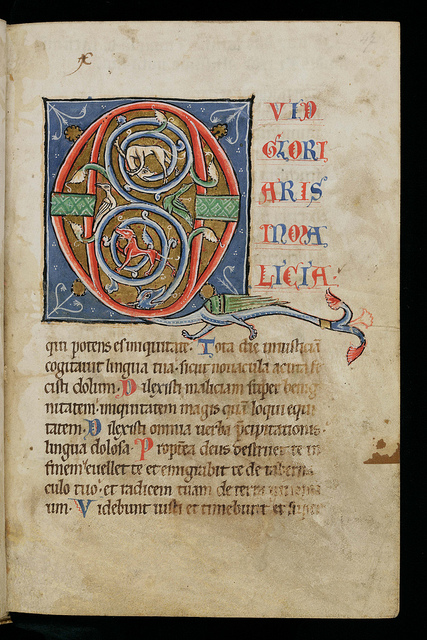 QUID
GLORI
ARIS
IN MA
LICIA·
qui potens es iniquitate. Tota die iniusticiā
cogitauit lingua tua. sicut nouacula acuta fe
cisti dolum. Dilexisti maliciam super benig
nitatem. iniquitatem magis quā loqui equi
tatem. Dilexisti omnia uerba p̄cipitationis.
lingua dolosa. Propterea deus destruet te in
finem euellet te et emigrabit te de taberna
culo tuo. et radicem tuam de terra uiuenti
um. Videbunt iusti et timebunt et super